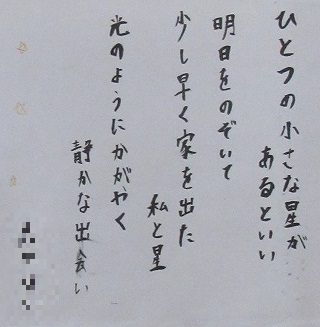 ひとつの小さな星が
あるといい
明日をのぞいて
少し早く家を出た
私と星
光のようにかがやく
静かな出会い